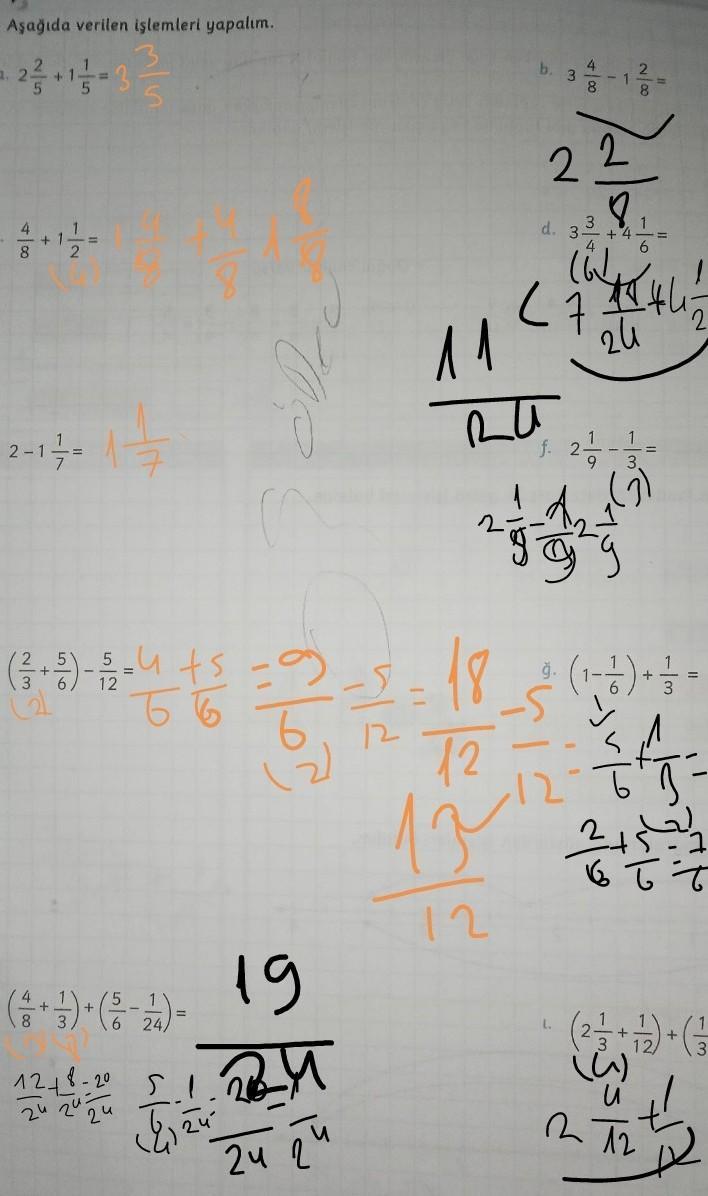 Aşağıda verilen işlemleri yapalım.
2 2/5 + 1 1/5 = 3 3/5
b. 3 4/8 - 1 2/8 =
2 2/8
4/8 + 1 1/2 = 1 4/8 + 4/8 1 8/8
(4)
d. 3 3/4 + 4 1/6 =
(6)
11/24
2 - 1 1/7 = 1 1/7
f. 2 1/9 - 1/3 =
(3)
(2/3 + 5/6) - 5/12 = 4/6 + 5/6 = 9/6 - 5/12 = 18/12 - 5/12 =
(2) (2)
13/12
ğ. (1 - 1/6) + 1/3 =
5/6 + 1/3 =
(2)
2/6 + 5/6 = 7/6
(4/8 + 1/3) + (5/6 - 1/24) = 19/24
12/24 + 8/24 = 20/24 5/6 - 1/24 =
(4)
ı. (2 1/3 + 1/12) + (1/3
(4)
2 4/12 + 1/12